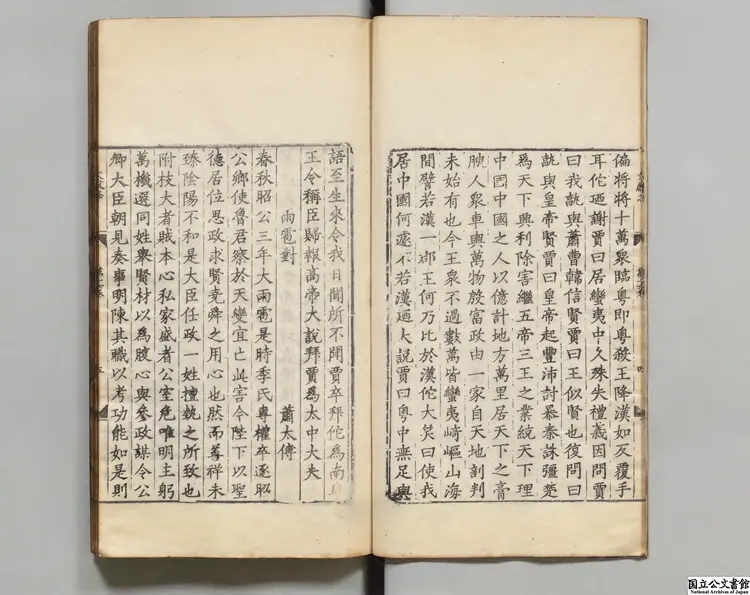 偏將將十萬衆臨粤即粤殺王降漢如反覆手
耳佗廼謝賈曰居蠻夷中久殊失禮義因問賈
曰我孰與蕭曹韓信賢賈曰王似賢也復問曰
孰與皇帝賢賈曰皇帝起豐沛討暴秦誅彊楚
爲天下興利除害繼五帝三王之業統天下理
中國中國之人以億計地方萬里居天下之膏
腴人衆車輿萬物殷富政由一家自天地剖判
未始有也今王衆不過數萬皆蠻夷崎嶇山海
間譬若漢一郡王何乃比於漢佗大笑曰使我
居中國何遽不若漢廼大説賈曰粤中無足與
語至生來令我日聞所不聞賈卒拜佗爲南粤
王令稱臣歸報高帝大説拜賈爲太中大夫
雨雹對
蕭太傅
春秋昭公三年大雨雹是時季氏專權卒逐昭
公鄉使魯君察於天變宜亡此害今陛下以聖
德居位思政求賢堯舜之用心也然而善祥未
臻陰陽不和是大臣任政一姓擅埶之所致也
附枝大者賊本心私家盛者公室危唯明主躬
萬機選同姓舉賢材以爲腹心與參政謀令公
卿大臣朝見奏事明陳其職以考功能如是則
国立公文書館
National Archives of Japan